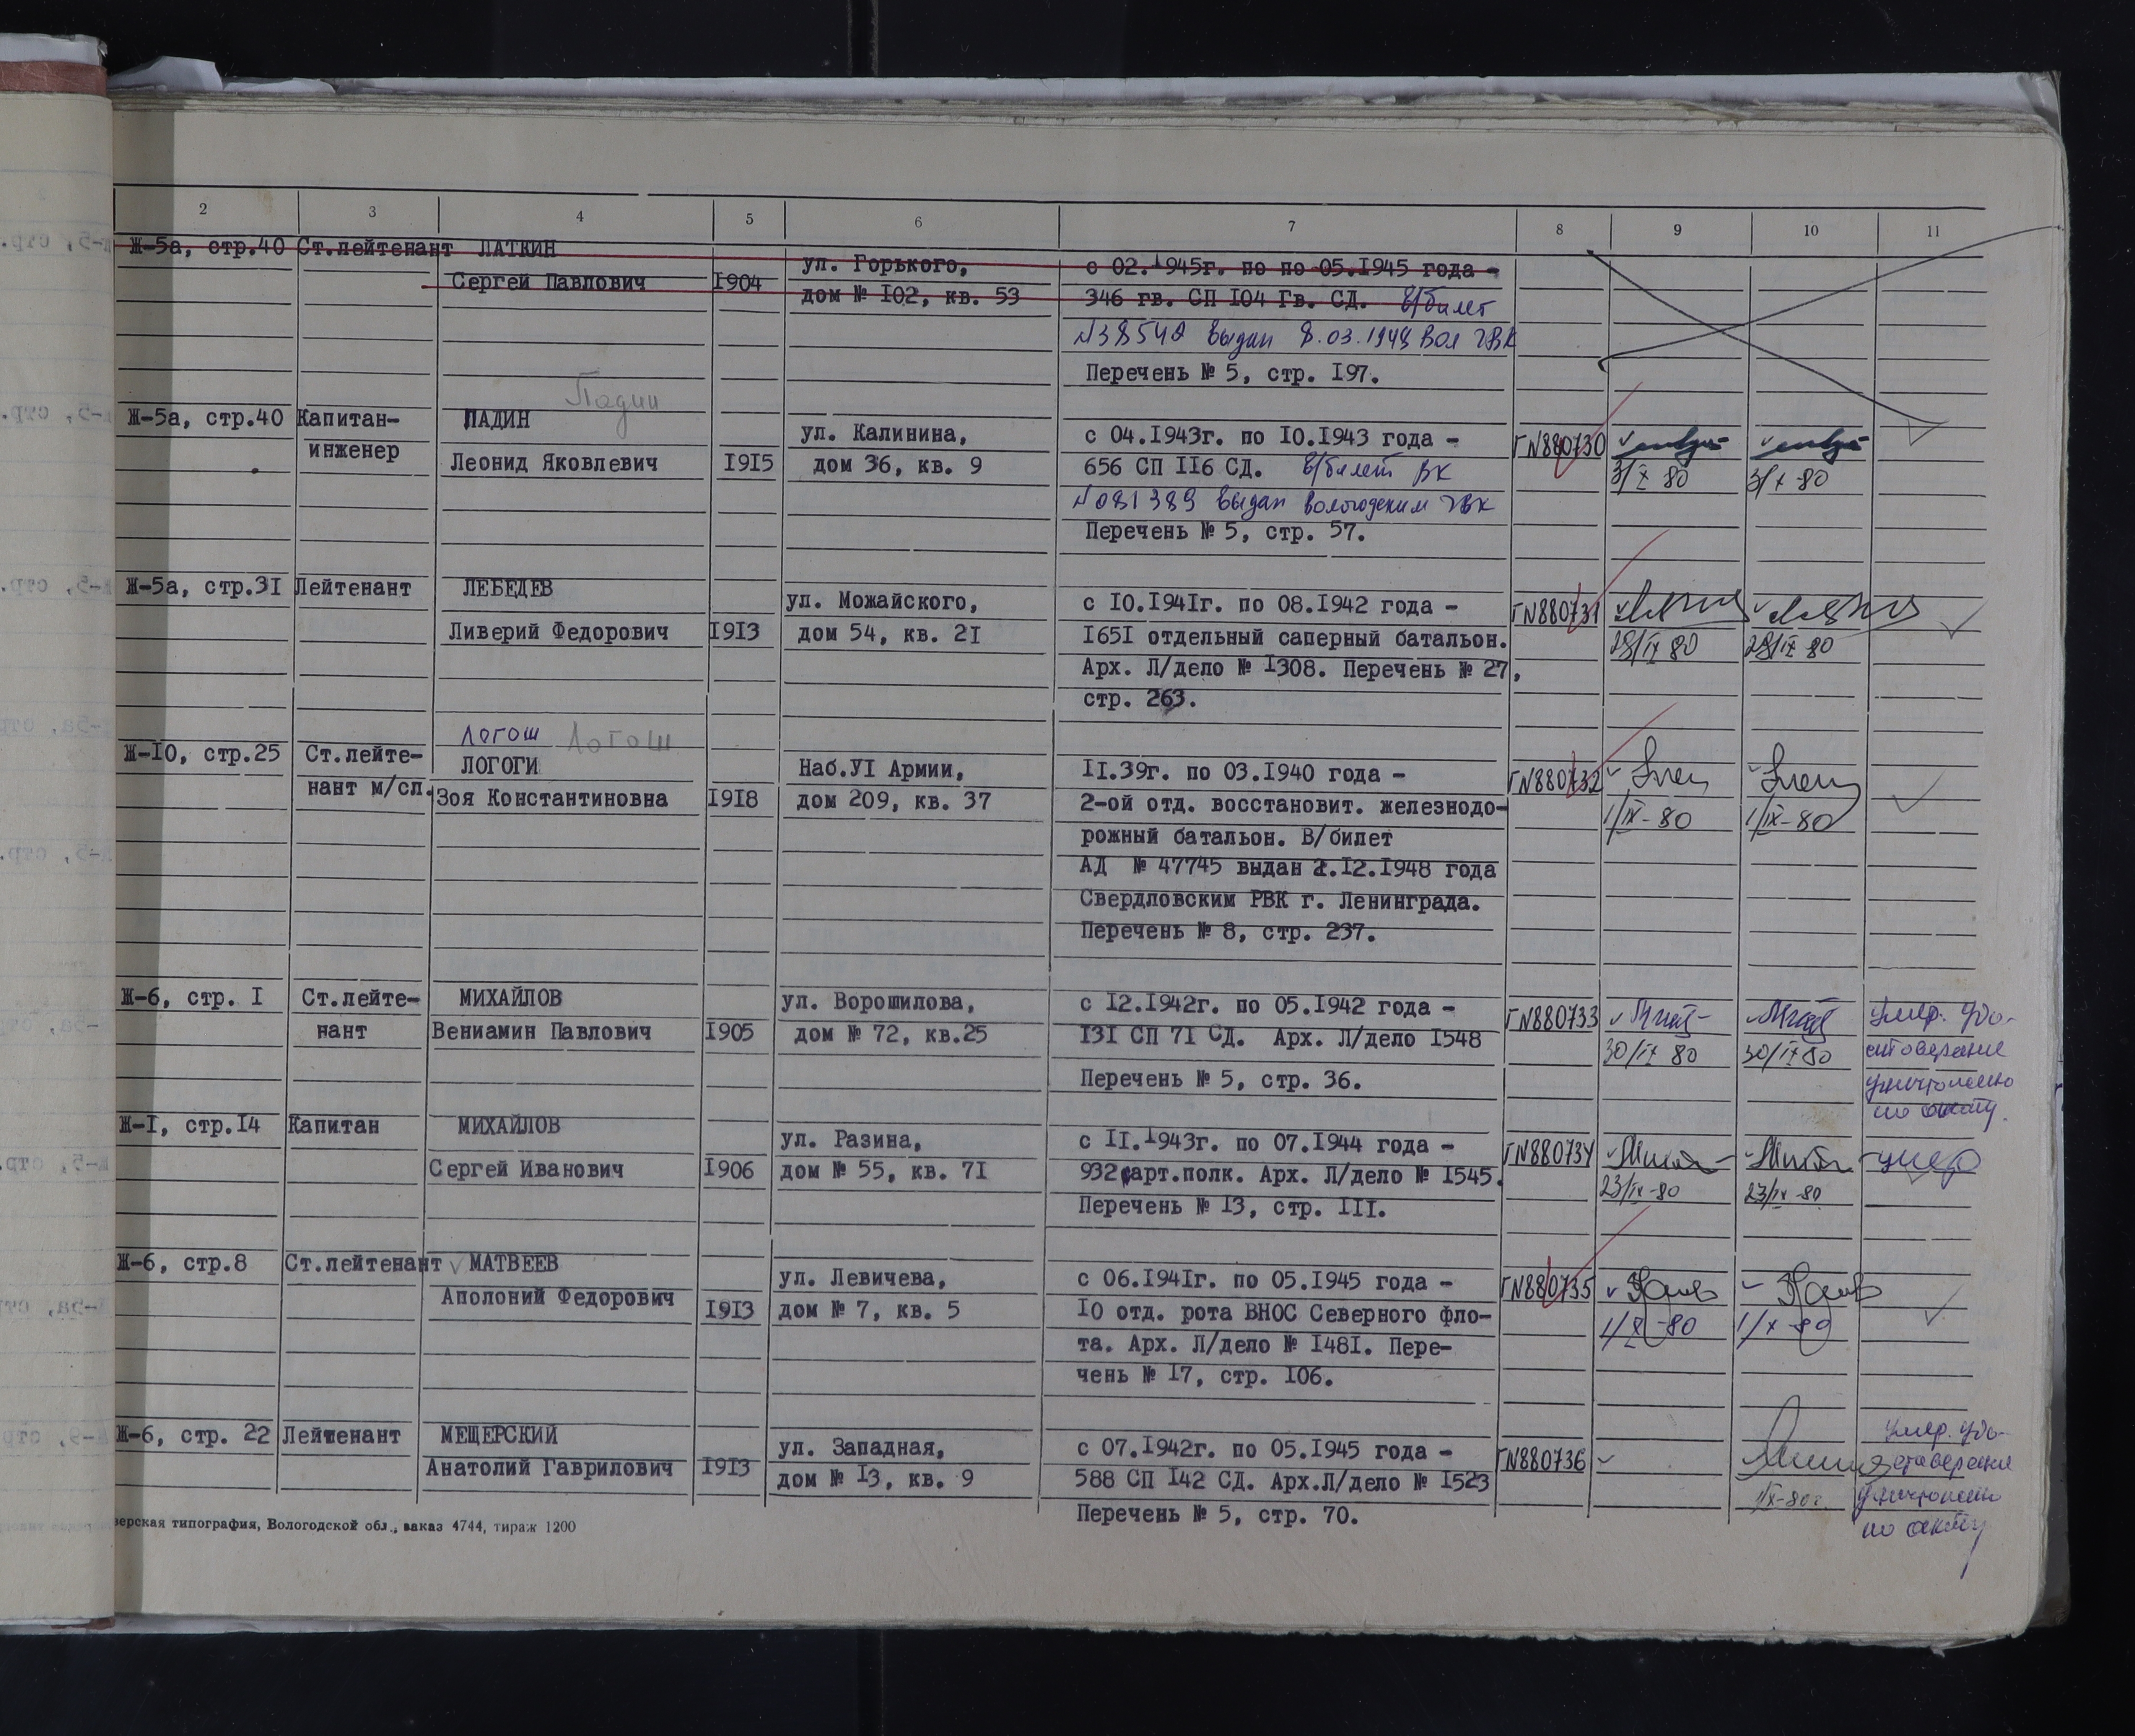 2 3 4 5 6 7 8 9 10 11
Ж-5а, стр.40 Ст.лейтенант ЛАТКИН
Сергей Павлович 1904
ул. Горького,
дом № 102, кв. 53
с 02.1945г. по по 05.1945 года -
346 гв. СП 104 Гв. СД. в/билет
выдан 8.03.1948 Вол ГВК
Перечень № 5, стр. 197.
Падин
Ж-5а, стр.40 Капитан-
инженер
ПАДИН
Леонид Яковлевич 1915
ул. Калинина,
дом 36, кв. 9
с 04.1943г. по 10.1943 года -
656 СП 116 СД. в/билет ВК
№081389 выдан Вологодским ГВК
Перечень № 5, стр. 57.
Г№880730
3/X 80 3/X-80
Ж-5а, стр.31 Лейтенант ЛЕБЕДЕВ
Ливерий Федорович 1913
ул. Можайского,
дом 54, кв. 21
с 10.1941г. по 08.1942 года -
1651 отдельный саперный батальон.
Арх. Л/дело № 1308. Перечень № 27,
стр. 263.
Г№880731
29/IX 80 29/IX-80
Логош Логош
Ж-10, стр.25 Ст.лейте-
нант м/сл.
ЛОГОГИ
Зоя Константиновна 1918
Наб.УI Армии,
дом 209, кв. 37
11.39г. по 03.1940 года -
2-ой отд. восстановит. железнодо-
рожный батальон. В/билет
АД № 47745 выдан 2.12.1948 года
Свердловским РВК г. Ленинграда.
Перечень № 8, стр. 237.
Г№880732
1/IX-80 1/IX-80
Ж-6, стр. 1 Ст.лейте-
нант
МИХАЙЛОВ
Вениамин Павлович 1905
ул. Ворошилова,
дом № 72, кв.25
с 12.1942г. по 05.1942 года -
131 СП 71 СД. Арх. Л/дело 1548
Перечень № 5, стр. 36.
Г№880733
30/IX 80 30/IX 80
Умер. Удо-
стоверение
уничтожено
по акту.
Ж-1, стр.14 Капитан МИХАЙЛОВ
Сергей Иванович 1906
ул. Разина,
дом № 55, кв. 71
с 11.1943г. по 07.1944 года -
932 арт.полк. Арх. Л/дело № 1545.
Перечень № 13, стр. 111.
Г№880734
23/IX-80 23/IX-80
умер
Ж-6, стр.8 Ст.лейтенант МАТВЕЕВ
Аполоний Федорович 1913
ул. Левичева,
дом № 7, кв. 5
с 06.1941г. по 05.1945 года -
10 отд. рота ВНОС Северного фло-
та. Арх. Л/дело № 1481. Пере-
чень № 17, стр. 106.
Г№880735
1/X-80 1/X-80
Ж-6, стр. 22 Лейтенант МЕЩЕРСКИЙ
Анатолий Гаврилович 1913
ул. Западная,
дом № 13, кв. 9
с 07.1942г. по 05.1945 года -
588 СП 142 СД. Арх.Л/дело № 1523
Перечень № 5, стр. 70.
Г№880736
1/X-80г.
Умер. Удо-
стоверение
уничтожено
по акту
верская типография, Вологодской обл., заказ 4744, тираж 1200